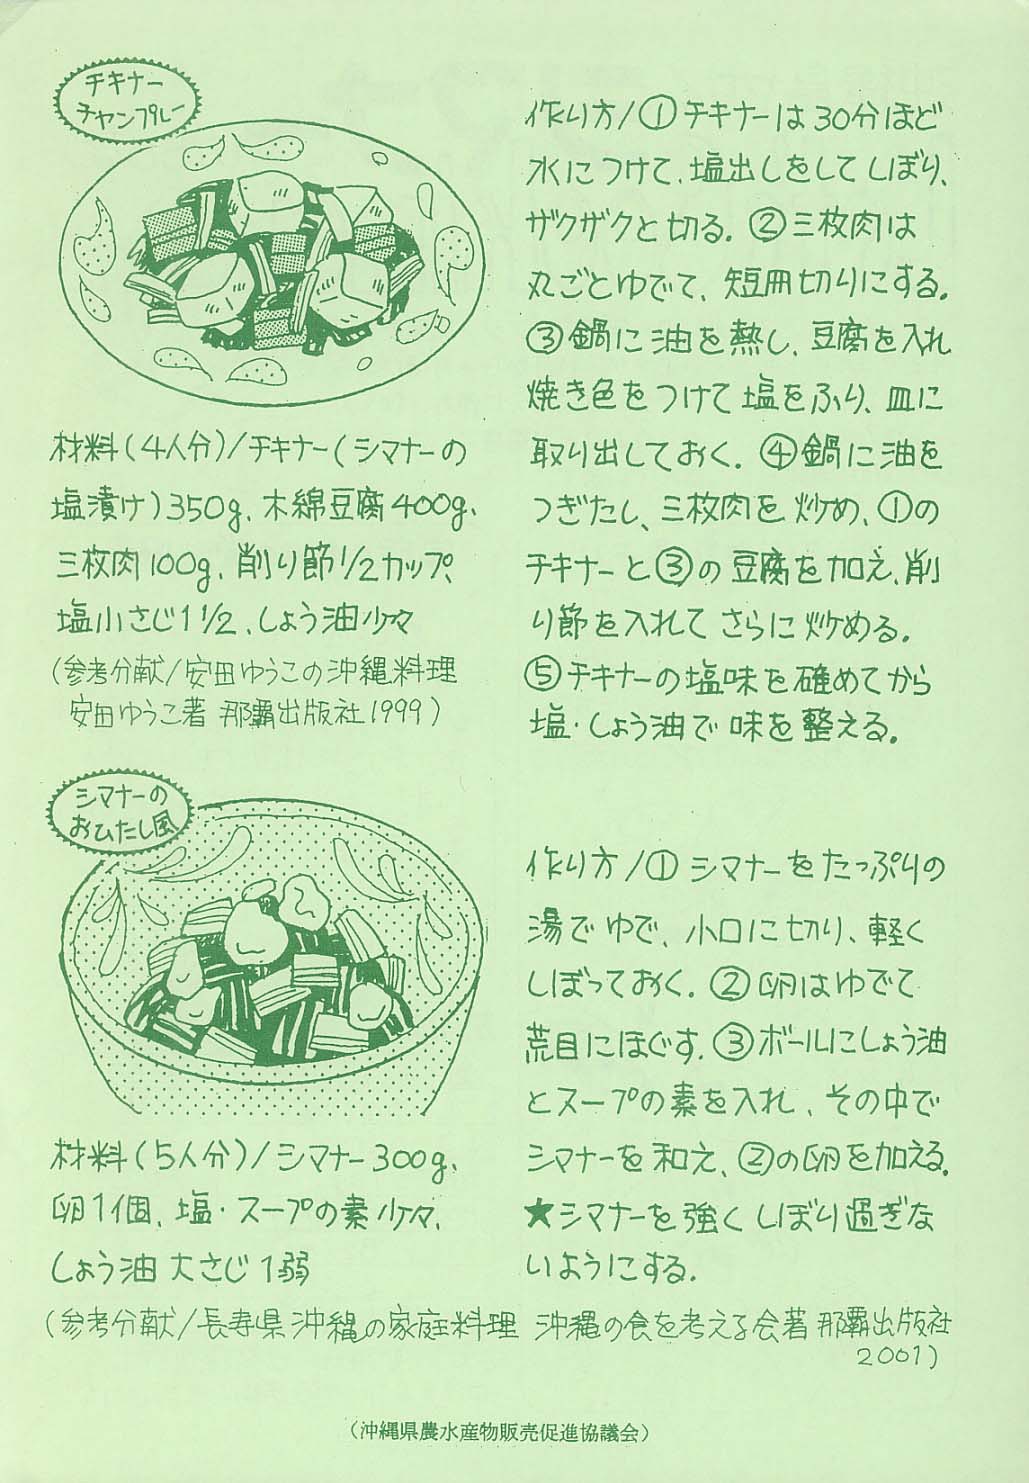 チキナー
チャンプルー
材料(4人分)/チキナー(シマナーの
塩漬け)350g、木綿豆腐400g、
三枚肉100g、削り節1/2カップ、
塩小さじ1 1/2、しょう油少々
(参考分献/安田ゆうこの沖縄料理
安田ゆうこ著 那覇出版社1999)
作り方/①チキナーは30分ほど
水につけて、塩出しをしてしぼり、
ザクザクと切る。②三枚肉は
丸ごとゆでて、短冊切りにする。
③鍋に油を熱し、豆腐を入れ
焼き色をつけて塩をふり、皿に
取り出しておく。④鍋に油を
つぎたし、三枚肉を炒め、①の
チキナーと③の豆腐を加え、削
り節を入れてさらに炒める。
⑤チキナーの塩味を確めてから
塩・しょう油で味を整える。
シマナーの
おひたし風
材料(5人分)/シマナー300g、
卵1個、塩・スープの素少々、
しょう油 大さじ1弱
作り方/① シマナーをたっぷりの
湯でゆで、小口に切り、軽く
しぼっておく。②卵はゆでて
荒目にほぐす。③ボールにしょう油
とスープの素を入れ、その中で
シマナーを和え、②の卵を加える。
★シマナーを強くしぼり過ぎな
いようにする。
(参考分献/長寿県沖縄の家庭料理 沖縄の食を考える会著 那覇出版社
2001)
(沖縄県農水産物販売促進協議会)